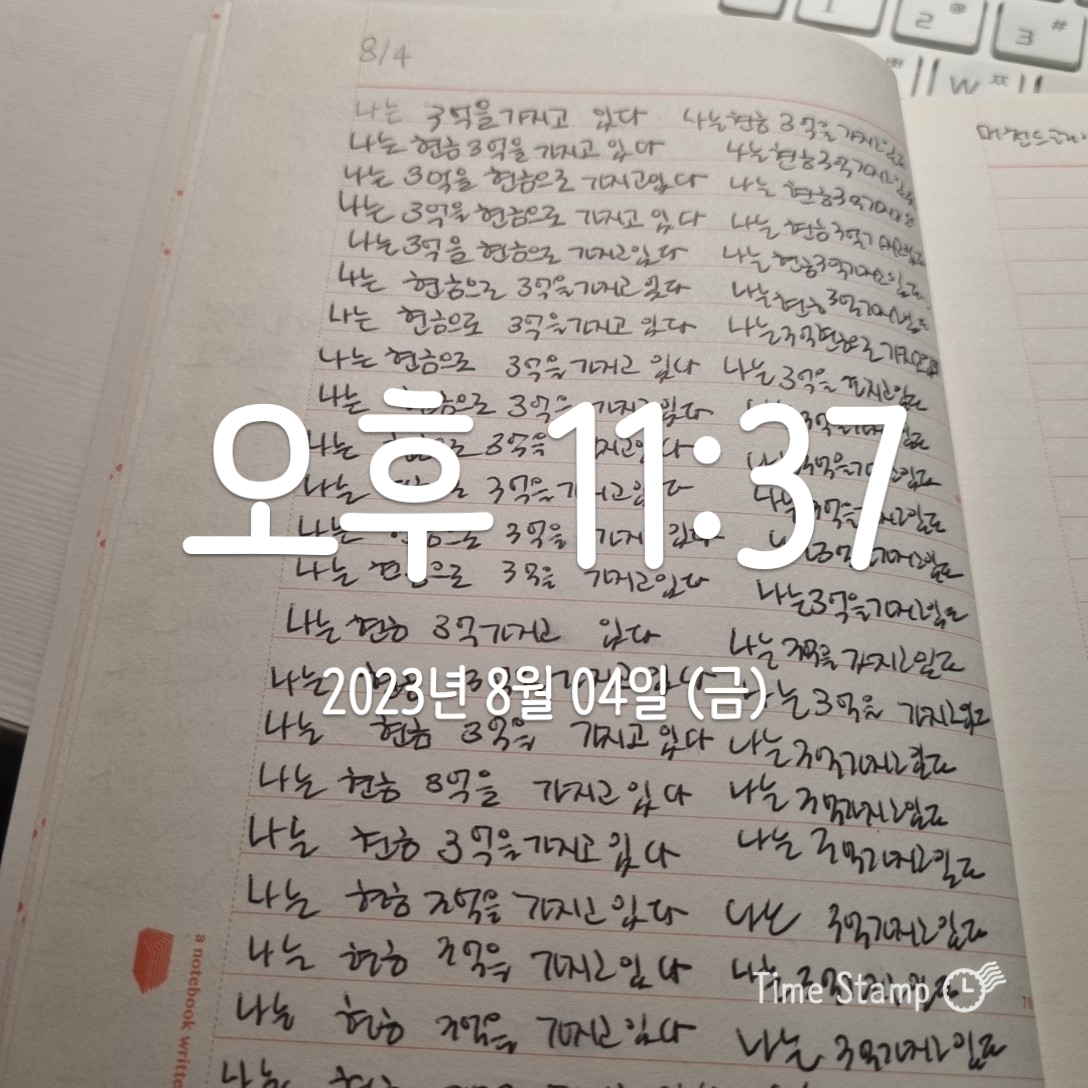 8/4
나는 3억을 가지고 있다 나는 현금 3억을 가지고 있다
나는 현금 3억을 가지고 있다 나는 현금 3억
나는 3억을 현금으로 가지고 있다 나는 현금 3억
나는 3억을 현금으로 가지고 있다 나는 현금 3억
나는 3억을 현금으로 가지고 있다 나는 현금 3억
나는 현금으로 3억을 가지고 있다 나는 현금 3억
나는 현금으로 3억을 가지고 있다 나는 3억 현금으로
나는 현금으로 3억을 가지고 있다 나는 3억을 가지고 있다
나는 현금으로 3억을 가지고 있다 3억을
나는 현금으로 3억을 가지고 있다 3억을
나는 3억을 가지고 있다 나는 3억을 가지고 있다
나는 3억을 가지고 있다 3억을 가지고 있다
나는 현금으로 3억을 가지고 있다 나는 3억을 가지고 있다
나는 현금 3억 가지고 있다 나는 3억을 가지고 있다
나는 현금 3억 가지고 있다 나는 3억을 가지고 있다
나는 현금 3억을 가지고 있다 나는 3억 가지고 있다
나는 현금 8억을 가지고 있다 나는 3억 가지고 있다
나는 현금 3억을 가지고 있다 나는 3억 가지고 있다
나는 현금 3억을 가지고 있다 나는 3억 가지고 있다
나는 현금 3억을 가지고 있다 나는 3억
나는 현금 3억을 가지고 있다 나는 3억 가지고 있다
나는 현금
오후 11:37
2023년 8월 04일 (금)
Time Stamp
a notebook
1
2 @
3 #
W ㅉ